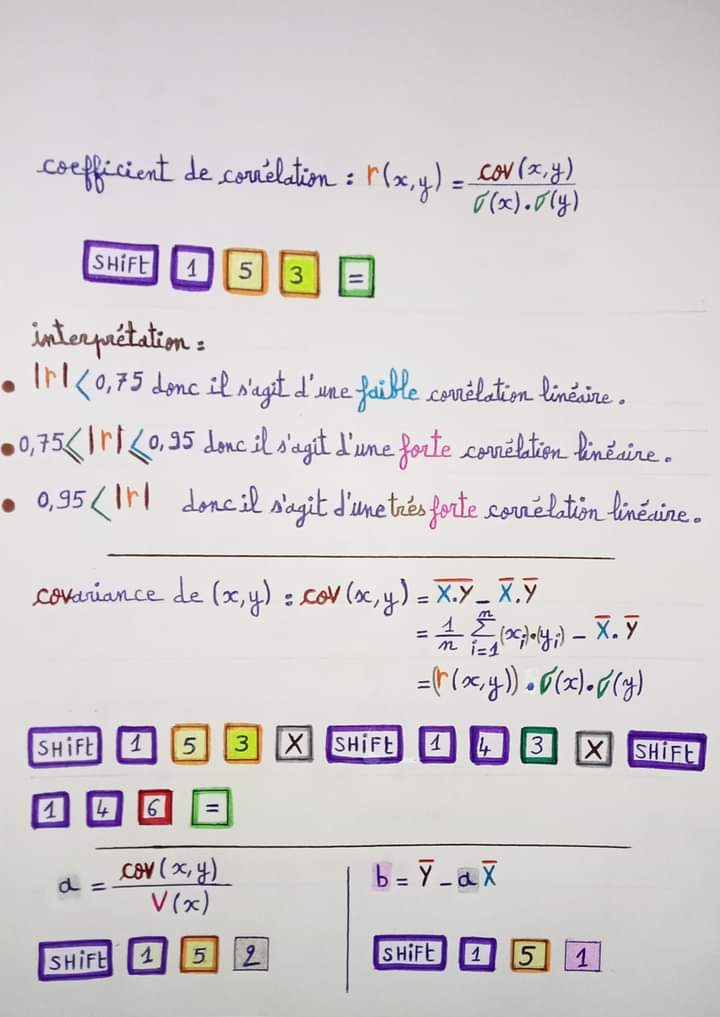 coefficient de corrélation : r(x,y) = cov(x,y) / σ(x).σ(y)
SHIFT 1 5 3 =
interprétation :
• |r| < 0,75 donc il s'agit d'une faible corrélation linéaire.
• 0,75 ≤ |r| ≤ 0,95 donc il s'agit d'une forte corrélation linéaire.
• 0,95 < |r| donc il s'agit d'une trés forte corrélation linéaire.
covariance de (x,y) : cov(x,y) = X̅.̅Y̅ - X̅.Y̅
= 1/n Σ_{i=1}^{n} (x_i)•(y_i) - X̅.Y̅
= (r(x,y)) . σ(x).σ(y)
SHIFT 1 5 3 X SHIFT 1 4 3 X SHIFT
1 4 6 =
a = cov(x,y) / V(x)
SHIFT 1 5 2
b = Y̅ - a X̅
SHIFT 1 5 1